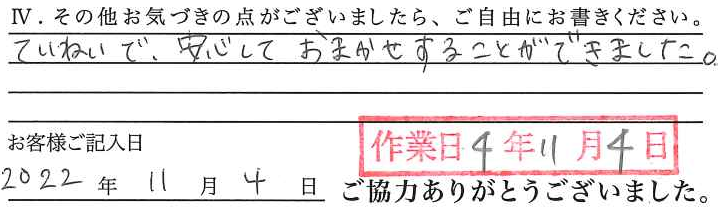 Ⅳ．その他お気づきの点がございましたら、ご自由にお書きください。
ていねいで、安心して おまかせすることができました。
お客様ご記入日
作業日 4 年 11 月 4 日
2022 年 11 月 4 日
ご協力ありがとうございました。